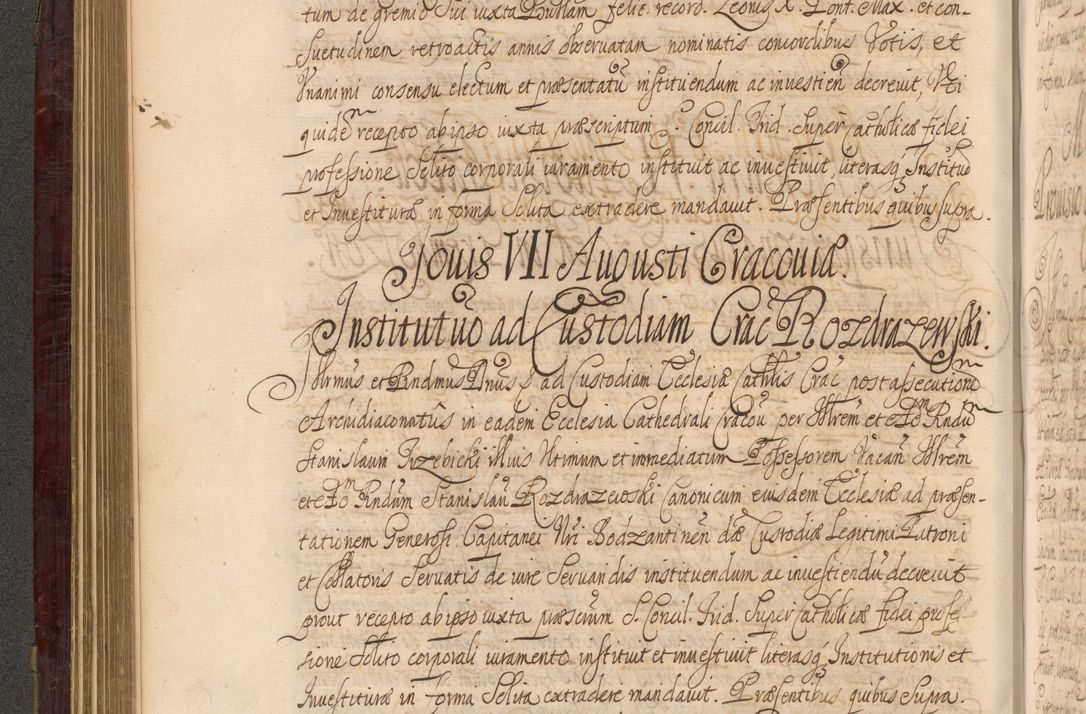 tum de gremio sui iuxta Bullam felic. record. Leonis X. Pont. Max. et con-
suetudinem retroactis annis observatam nominatis concordibus Votis, et
Vnanimi consensu electum et præsentatũ instituendum ac investien decrevit, Vti
quidẽ recepto ab ipso iuxta præscriptum S. Concil. Trid. super Catholicæ fidei
professione solito corporali iuramento instituit ac investivit, literasq; Institutio
et Investituræ in forma solita extradere mandavit. Præsentibus quibus supra.
Jovis VII Augusti Cracoviæ.
Institutio ad Custodiam Crac Rozdrazewski.
Illrmus et Rndmus Dnus s ad Custodiam Ecclesiæ Cathlis Crac post assecutionẽ
Archidiaconatûs in eadem Ecclesia Cathedrali Cracou per Illrem et Adm Rndũ
Stanislaum Trzebicki illius Vltimum et immediatum Possessorem Vacañ Illrem
et Adm Rndum Stanislaũ Rozdrazewski Canonicum eiusdem Ecclesiæ ad præsen-
tationem Generosi Capitanei Nri Bodzantineñ dæ Custodiæ Legitimi Patroni
et Collatoris servatis de iure servandis instituendum ac investiendũ decrevit
prout recepto ab ipso iuxta præscrum S. Concil. Trid. super Catholicæ fidei profes-
sione solito corporali iuramento instituit et investivit literasq; Institutionis et
Investituræ in forma solita extradere mandavit. Præsentibus quibus supra.